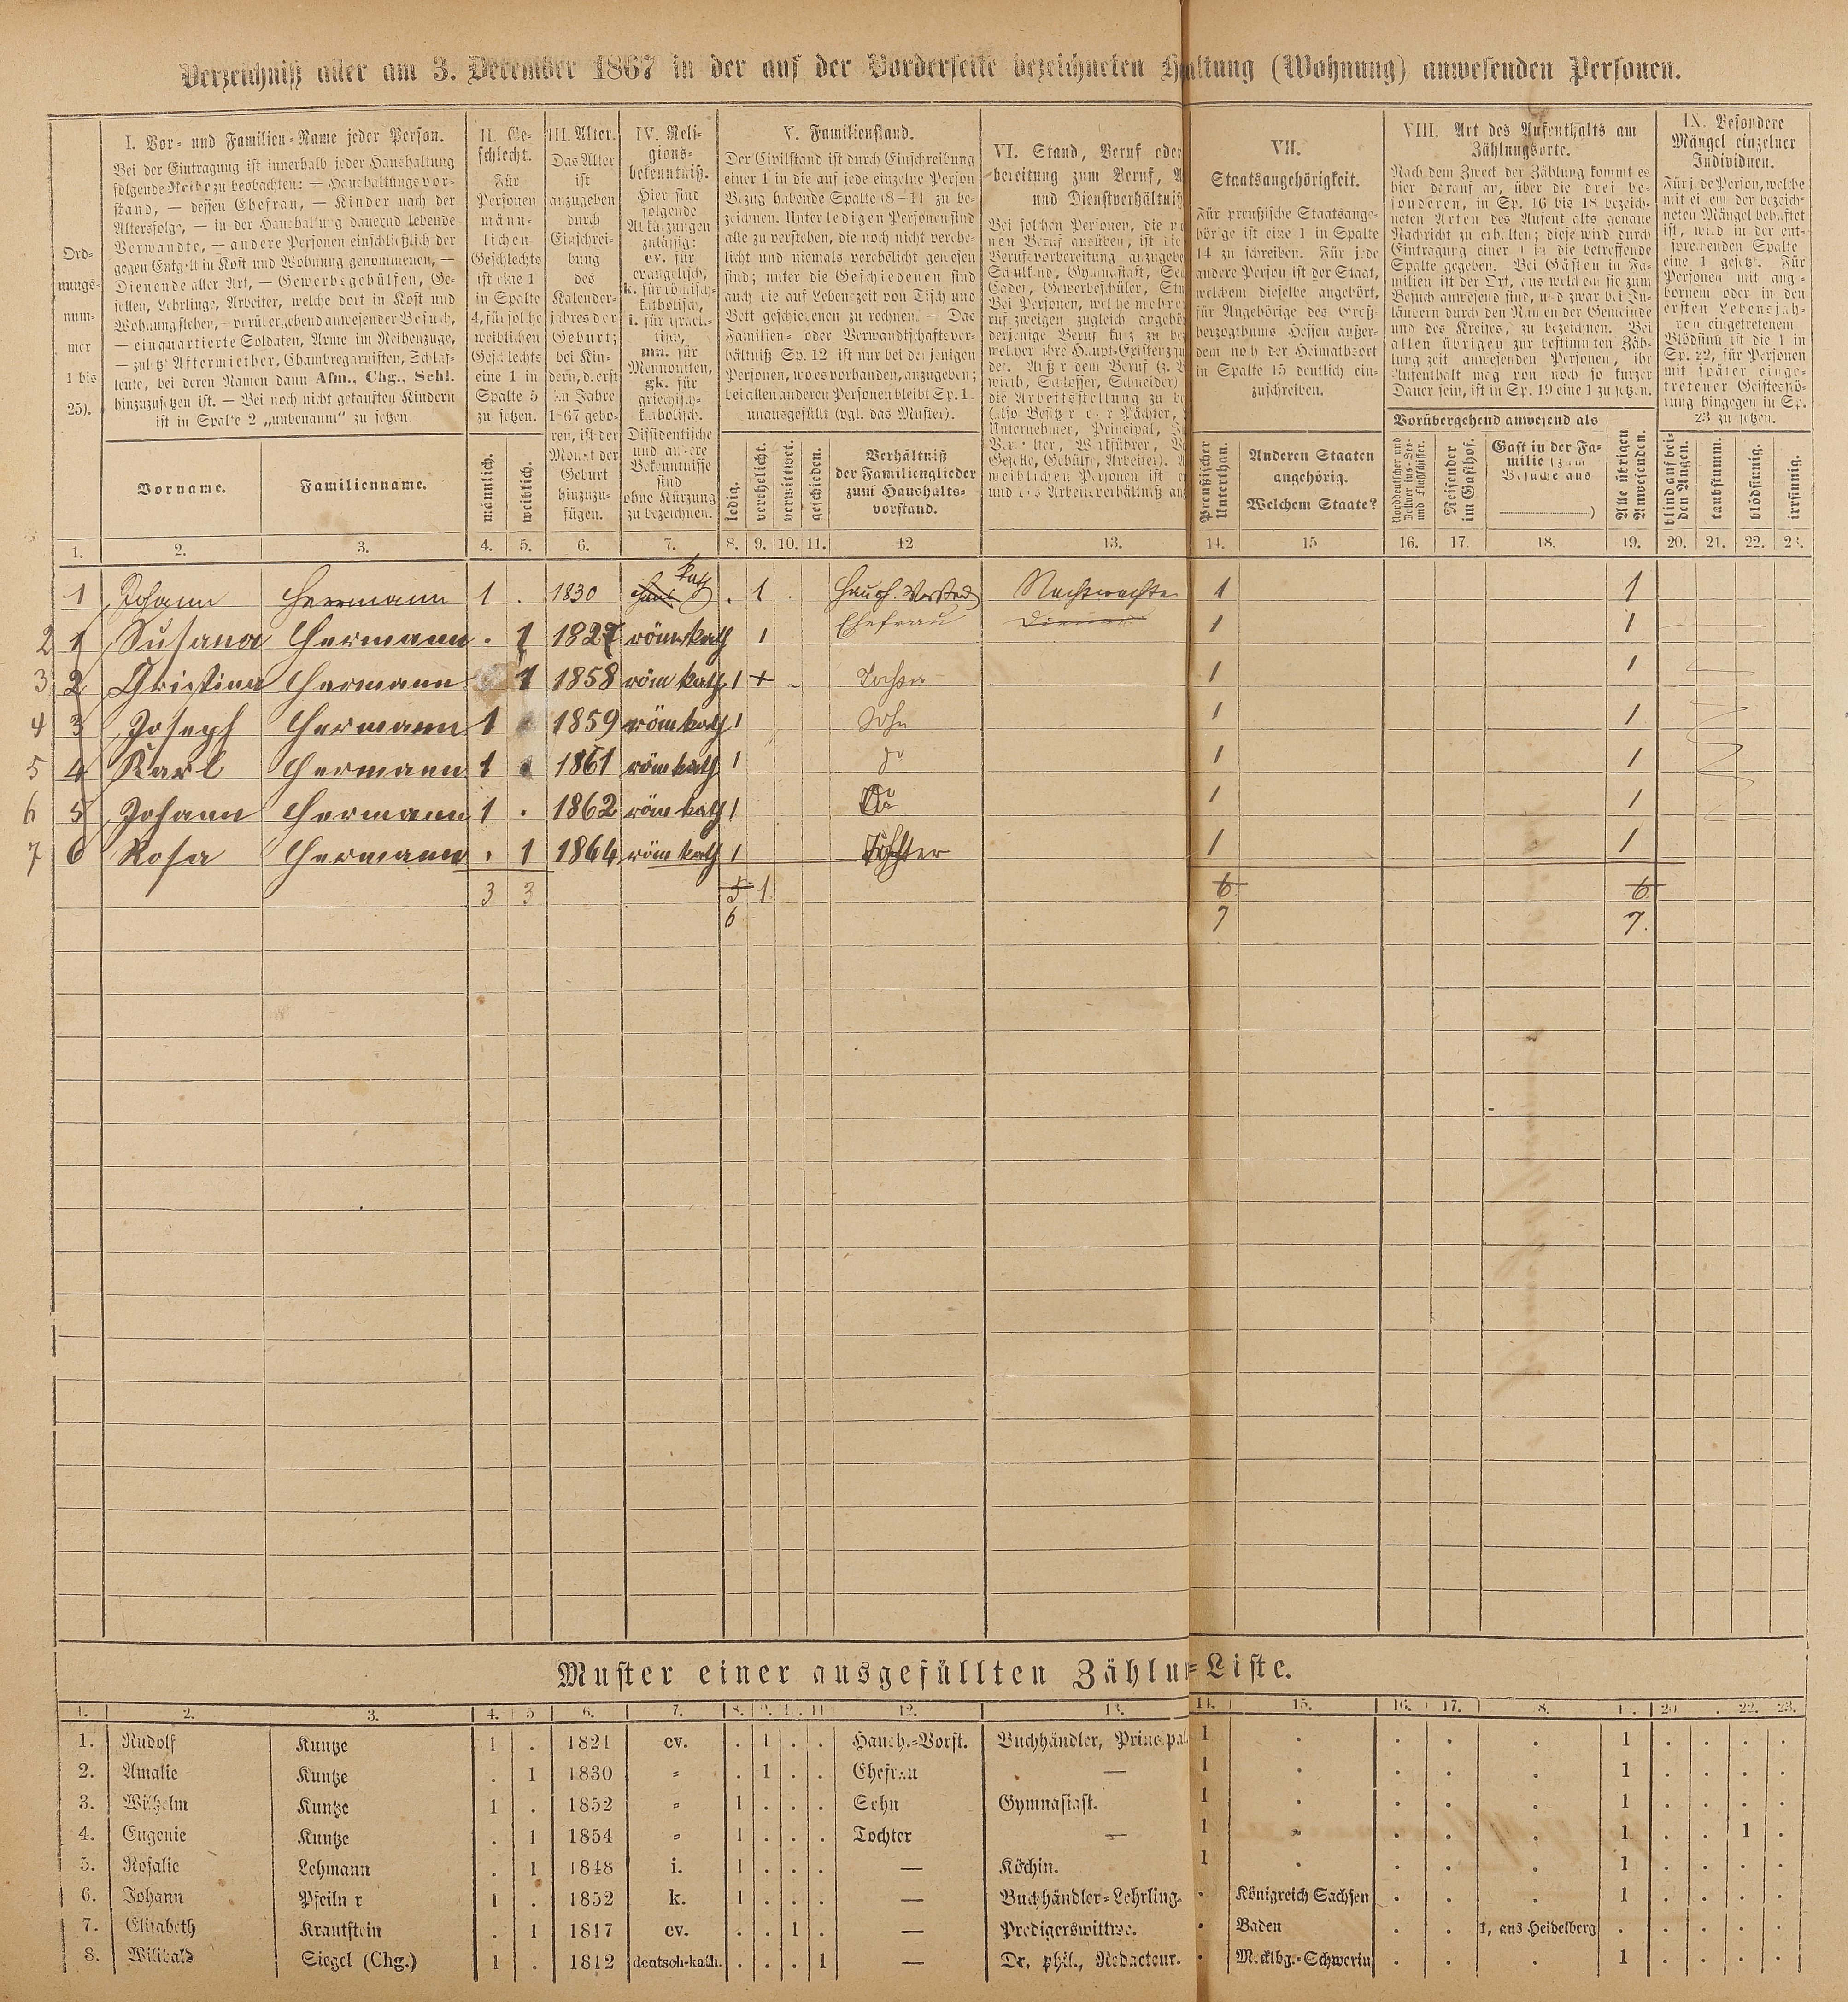 Verzeichniß aller am 3. December 1867 in der auf der Vorderseite bezeichneten Haltung (Wohnung) anwesenden Personen.
Ord-
nungs-
num-
mer
1 bis
25).
I. Vor- und Familien-Name jeder Person.
Bei der Eintragung ist innerhalb jeder Haushaltung
folgende Reihe zu beobachten: — Haushaltungsvor-
stand, — dessen Ehefrau, — Kinder nach der
Altersfolge, — in der Haushaltung dauernd lebende
Verwandte, — andere Personen einschließlich der
gegen Entgelt in Kost und Wohnung genommenen, —
Dienende aller Art, — Gewerbsgehülfen, Ge-
sellen, Lehrlinge, Arbeiter, welche dort in Kost und
Wohnung stehen, — vorübergehend anwesender Besuch,
— einquartierte Soldaten, Arme im Reihenzuge,
— zuletzt Aftermiether, Chambregarnisten, Schlaf-
leute, bei deren Namen dann Afm., Chg., Schl.
hinzuzusetzen ist. — Bei noch nicht getauften Kindern
ist in Spalte 2 „unbenannt“ zu setzen.
Vorname.
Familienname.
II. Ge-
schlecht.
Für
Personen
männ-
lichen
Geschlechts
ist eine 1
in Spalte
4, für solche
weiblichen
Geschlechts
eine 1 in
Spalte 5
zu setzen.
männlich.
weiblich.
III. Alter.
Das Alter
ist
anzugeben
durch
Einschrei-
bung
des
Kalender-
jahres der
Geburt;
bei Kin-
dern, d. erst
im Jahre
1867 gebo-
ren, ist der
Monat der
Geburt
hinzuzu-
fügen.
IV. Reli-
gions-
bekenntniß.
Hier sind
folgende
Abkürzungen
zulässig:
ev. für
evangelisch,
k. für römisch-
katholisch,
i. für israeli-
tisch,
mn. für
Mennoniten,
gk. für
griechisch-
katholisch.
Dissidentische
und andere
Bekenntnisse
sind
ohne Kürzung
zu bezeichnen.
V. Familienstand.
Der Civilstand ist durch Einschreibung
einer 1 in die auf jede einzelne Person
Bezug habende Spalte (8–11) zu be-
zeichnen. Unter ledigen Personen sind
alle zu verstehen, die noch nicht verehe-
licht und niemals verehelicht gewesen
sind; unter die Geschiedenen sind
auch die auf Lebenszeit von Tisch und
Bett geschiedenen zu rechnen. — Das
Familien- oder Verwandtschaftsver-
hältniß Sp. 12 ist nur bei denjenigen
Personen, wo es vorhanden, anzugeben;
bei allen anderen Personen bleibt Sp. 1
unausgefüllt (vgl. das Muster).
ledig.
verehelicht.
verwittwet.
geschieden.
Verhältniß
der Familienglieder
zum Haushalts-
vorstand.
VI. Stand, Beruf oder
bereitung zum Beruf, A
und Dienstverhältniß
VII.
Staatsangehörigkeit.
Für preußische Staatsange-
hörige ist eine 1 in Spalte
14 zu schreiben. Für jede
andere Person ist der Staat,
welchem dieselbe angehört,
für Angehörige des Groß-
herzogthums Hessen außer-
dem noch der Heimathsort
in Spalte 15 deutlich ein-
zuschreiben.
Preußischer
Unterthan.
Anderen Staaten
angehörig.
Welchem Staate?
VIII. Art des Aufenthalts am
Zählungsorte.
Nach dem Zweck der Zählung kommt es
hier darauf an, über die drei be-
sonderen, in Sp. 16 bis 18 bezeich-
neten Arten des Aufenthalts genaue
Nachricht zu erhalten; diese wird durch
Eintragung einer 1 in die betreffende
Spalte gegeben. Bei Gästen in Fa-
milien ist der Ort, aus welchem sie zum
Besuch anwesend sind, und zwar bei In-
ländern durch den Namen der Gemeinde
und des Kreises, zu bezeichnen. Bei
allen übrigen zur bestimmten Zäh-
lungszeit anwesenden Personen, ihr
Aufenthalt mag von noch so kurzer
Dauer sein, ist in Sp. 19 eine 1 zu setzen.
Vorübergehend anwesend als
Reisender
im Gasthof.
Gast in der Fa-
milie (zum
Besuche aus
)
Alle übrigen
Anwesenden.
IX. Besondere
Mängel einzelner
Individuen.
Für jede Person, welche
mit einem der bezeich-
neten Mängel behaftet
ist, wird in der ent-
sprechenden Spalte
eine 1 gesetzt. Für
Personen mit ange-
bornem oder in den
ersten Lebensjah-
ren eingetretenem
Blödsinn ist die 1 in
Sp. 22, für Personen
mit später einge-
tretener Geistesstö-
rung hingegen in Sp.
23 zu setzen.
blind auf bei-
den Augen.
taubstumm.
blödsinnig.
irrsinnig.
1. 2. 3. 4. 5. 6. 7. 8. 9. 10. 11. 12 13. 14. 15 16. 17. 18. 19. 20. 21. 22. 23.
1 Johann Herrmann 1 . 1830 kath . 1 . Haush. Vorstand Nachtwächter 1 1
2 1 Susana Hermann . 1 1827 röm kath 1 Ehefrau 1 1
3 2 Christina Hermann 1 1858 röm kath 1 + Tochter 1 1
4 3 Joseph Hermann 1 1859 röm kath 1 Sohn 1 1
5 4 Karl Hermann 1 1861 röm kath 1 do 1 1
6 5 Johann Hermann 1 . 1862 röm kath 1 1 1
7 6 Rosa Hermann . 1 1864 röm kath 1 Tochter 1 1
3 3 5 1 6 6
6 7 7.
Muster einer ausgefüllten Zählu=Liste.
1. 2. 3. 4. 5 6. 7. 8. 9. 1. 11 12. 13. 14. 15. 16. 17. 8. 1. 20 . 22. 23.
1. Rudolf Kuntze 1 . 1821 ev. . 1 . . Haush.-Vorst. Buchhändler, Principal 1 . . . . 1 . . . .
2. Amalie Kuntze . 1 1830 " . 1 . . Ehefrau — 1 . . . . 1 . . . .
3. Wilhelm Kuntze 1 . 1852 " 1 . . . Sohn Gymnasiast. 1 . . . . 1 . . . .
4. Eugenie Kuntze . 1 1854 " 1 . . . Tochter — 1 . . . . 1 . . 1 .
5. Rosalie Lehmann . 1 1848 i. 1 . . . — Köchin. 1 . . . . 1 . . . .
6. Johann Pfeiln r 1 . 1852 k. 1 . . . — Buchhändler-Lehrling. . Königreich Sachsen . . . 1 . . . .
7. Elisabeth Krautstein . 1 1817 ev. . . 1 . — Predigerswittwe. . Baden . . 1, aus Heidelberg . . . . .
8. Willibald Siegel (Chg.) 1 . 1812 deutsch-kath. . . . 1 — Dr. phil., Redacteur. . Mecklbg.-Schwerin . . . 1 . . . .